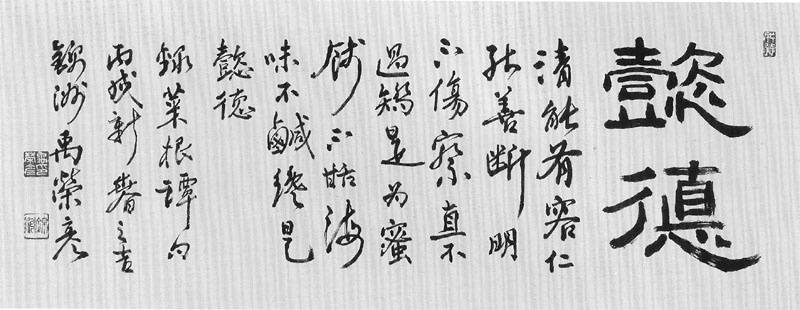 懿德
清能有容仁
能善斷明
不傷察直不
過矯是为蜜
餞不甜海
味不鹹纔是
懿德
錄菜根譚句
丙戌新春之吉
錦洲禹榮彦